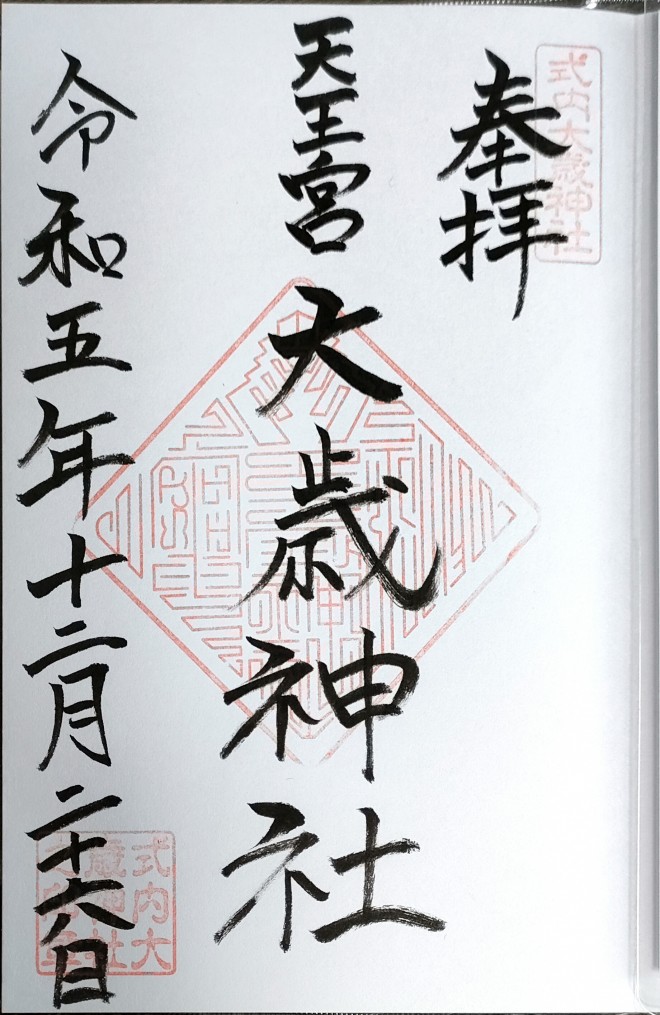 奉拝
式内大歳神社
天王宮
大歳神社
令和五年十二月二十六日